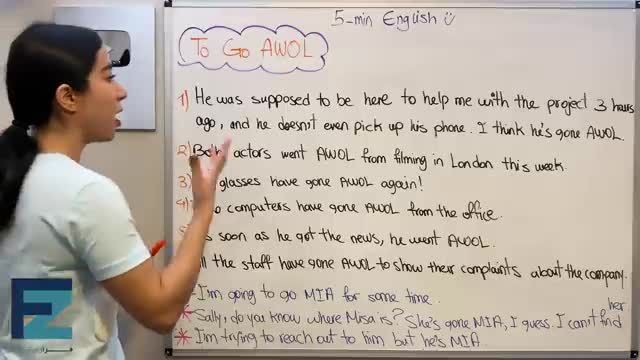 5-min English
To Go AWOL
1) He was supposed to be here to help me with the project 3 hours
ago, and he doesn't even pick up his phone. I think he's gone AWOL.
2) Both actors went AWOL from filming in London this week.
3) glasses have gone AWOL again!
4) computers have gone AWOL from the office.
soon as he got the news, he went AWOL.
the staff have gone AWOL to show their complaints about the company.
I'm going to go MIA for some time.
* Sally, do you know where Misa is? She's gone MIA, I guess. I can't find her
* I'm trying to reach out to him but he's MIA.
EZ